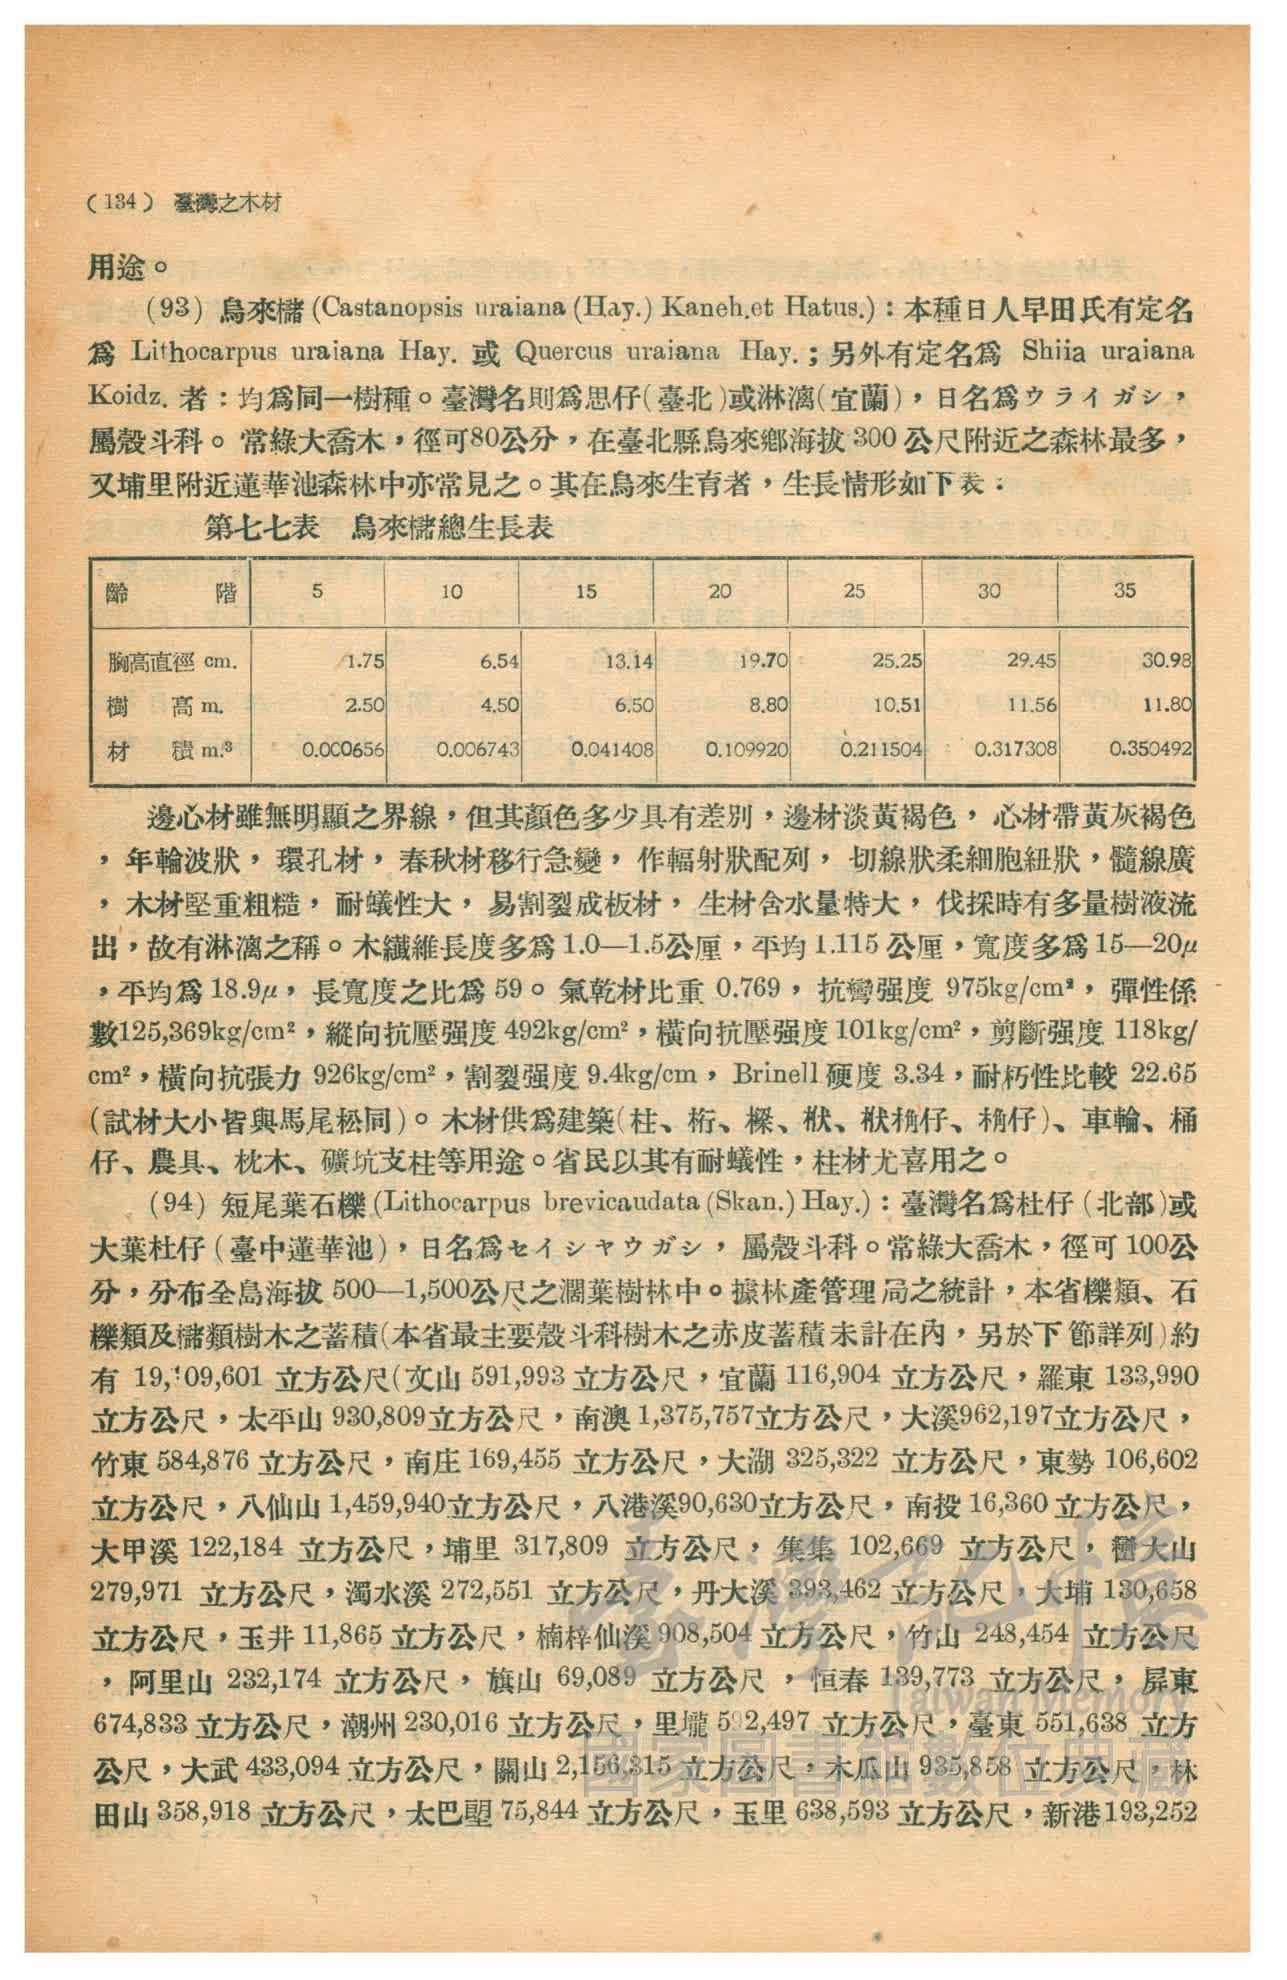 (134) 臺灣之木材
用途。
(93) 烏來櫧(Castanopsis uraiana (Hay.) Kaneh.et Hatus.)：本種日人早田氏有定名
爲 Lithocarpus uraiana Hay. 或 Quercus uraiana Hay.；另外有定名爲 Shiia uraiana
Koidz. 者：均爲同一樹種。臺灣名則爲思仔(臺北)或淋漓(宜蘭)，日名爲ウライガシ，
屬殼斗科。常綠大喬木，徑可80公分，在臺北縣烏來鄉海拔 300 公尺附近之森林最多，
又埔里附近蓮華池森林中亦常見之。其在烏來生育者，生長情形如下表：
第七七表 烏來櫧總生長表
齡 階 5 10 15 20 25 30 35
胸高直徑 cm. 1.75 6.54 13.14 19.70 25.25 29.45 30.98
樹 高 m. 2.50 4.50 6.50 8.80 10.51 11.56 11.80
材 積 m.³ 0.000656 0.006743 0.041408 0.109920 0.211504 0.317308 0.350492
邊心材雖無明顯之界線，但其顏色多少具有差別，邊材淡黃褐色，心材帶黃灰褐色
，年輪波狀，環孔材，春秋材移行急變，作輻射狀配列，切線狀柔細胞紐狀，髓線廣
，木材堅重粗糙，耐蟻性大，易割裂成板材，生材含水量特大，伐採時有多量樹液流
出，故有淋漓之稱。木纖維長度多爲 1.0—1.5公厘，平均 1.115 公厘，寬度多爲 15—20μ
，平均爲 18.9μ，長寬度之比爲 59。氣乾材比重 0.769，抗彎强度 975kg/cm²，彈性係
數125,369kg/cm²，縱向抗壓强度 492kg/cm²，橫向抗壓强度 101kg/cm²，剪斷强度 118kg/
cm²，橫向抗張力 926kg/cm²，割裂强度 9.4kg/cm，Brinell 硬度 3.34，耐朽性比較 22.65
(試材大小皆與馬尾松同)。木材供爲建築(柱、桁、樑、栿、栿桷仔、桷仔)、車輪、桶
仔、農具、枕木、礦坑支柱等用途。省民以其有耐蟻性，柱材尤喜用之。
(94) 短尾葉石櫟(Lithocarpus brevicaudata (Skan.) Hay.)：臺灣名爲杜仔(北部)或
大葉杜仔(臺中蓮華池)，日名爲セイシャウガシ，屬殼斗科。常綠大喬木，徑可 100公
分，分布全島海拔 500—1,500公尺之濶葉樹林中。據林產管理局之統計，本省櫟類、石
櫟類及櫧類樹木之蓄積(本省最主要殼斗科樹木之赤皮蓄積未計在內，另於下節詳列)約
有 19, 09,601 立方公尺(文山 591,993 立方公尺，宜蘭 116,904 立方公尺，羅東 133,990
立方公尺，太平山 930,809立方公尺，南澳 1,375,757立方公尺，大溪962,197立方公尺，
竹東 584,876 立方公尺，南庄 169,455 立方公尺，大湖 325,322 立方公尺，東勢 106,602
立方公尺，八仙山 1,459,940立方公尺，八港溪90,630立方公尺，南投 16,360 立方公尺，
大甲溪 122,184 立方公尺，埔里 317,809 立方公尺，集集 102,669 立方公尺，巒大山
279,971 立方公尺，濁水溪 272,551 立方公尺，丹大溪 393,462 立方公尺，大埔 130,658
立方公尺，玉井 11,865 立方公尺，楠梓仙溪 908,504 立方公尺，竹山 248,454 立方公尺
，阿里山 232,174 立方公尺，旗山 69,089 立方公尺，恒春 139,773 立方公尺，屏東
674,833 立方公尺，潮州 230,016 立方公尺，里壠 5 2,497 立方公尺，臺東 551,638 立方
公尺，大武 433,094 立方公尺，關山 2,156,315 立方公尺，木瓜山 935,858 立方公尺，林
田山 358,918 立方公尺，太巴塱 75,844 立方公尺，玉里 638,593 立方公尺，新港193,252
臺灣記憶
Taiwan Memory
國家圖書館數位典藏